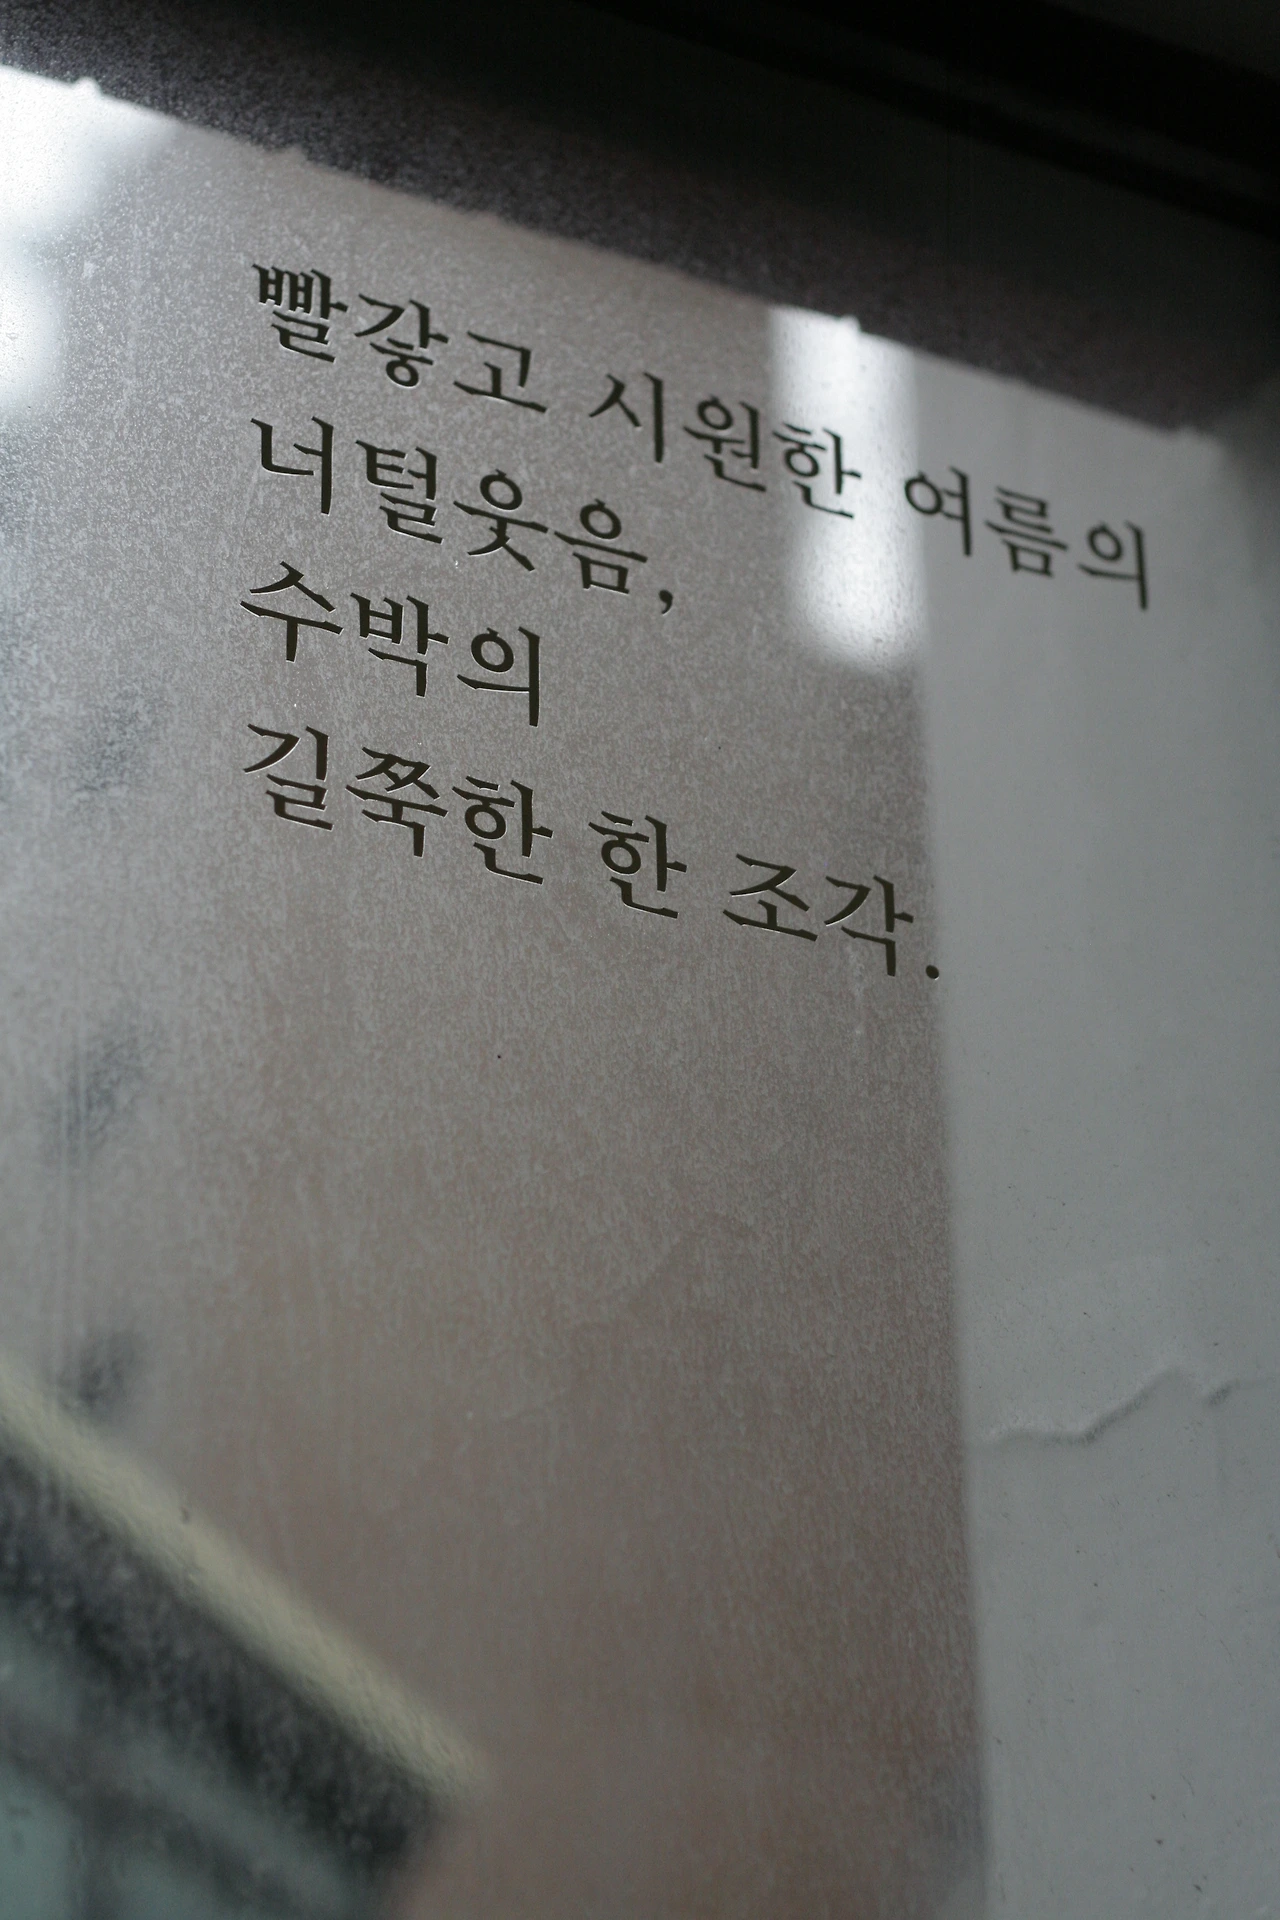 빨갛고 시원한 여름의
너털웃음,
수박의
길쭉한 한 조각.